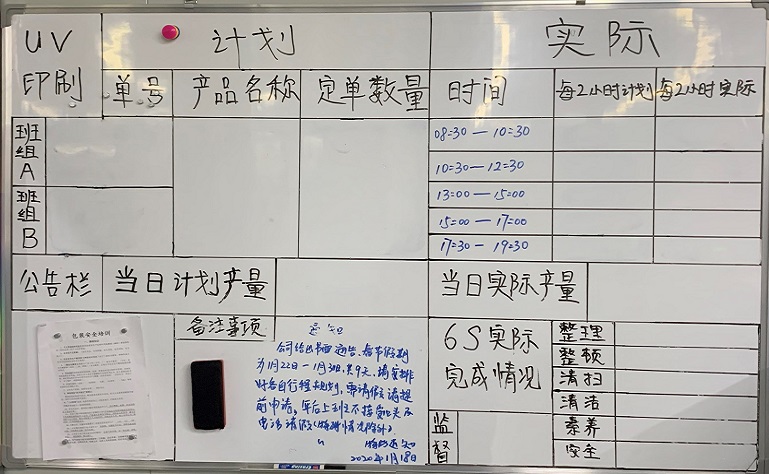 UV
印刷
计划
实际
单号
产品名称
定单数量
时间
每2小时计划
每2小时实际
班组A
08:30 — 10:30
10:30 — 12:30
13:00 — 15:00
班组B
15:00 — 17:00
17:30 — 19:30
公告栏
当日计划产量
当日实际产量
包装安全培训
备注事项
通知
公司给出书面通告,春节假期
为1月22日—1月30日,共9天,请安排
好各自行程规划,
前申请,年后上班不接受
电话请假(特殊情况除外)
特此通知
2020年1月18日
6S实际
完成情况
整理
整顿
清扫
清洁
素养
安全
监督